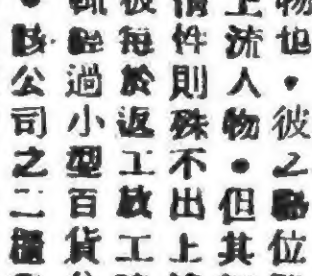 物也•彼之位
上流人物•但其
情件則殊不出上
彼每於返工放工
過小型百貨
•公司之二